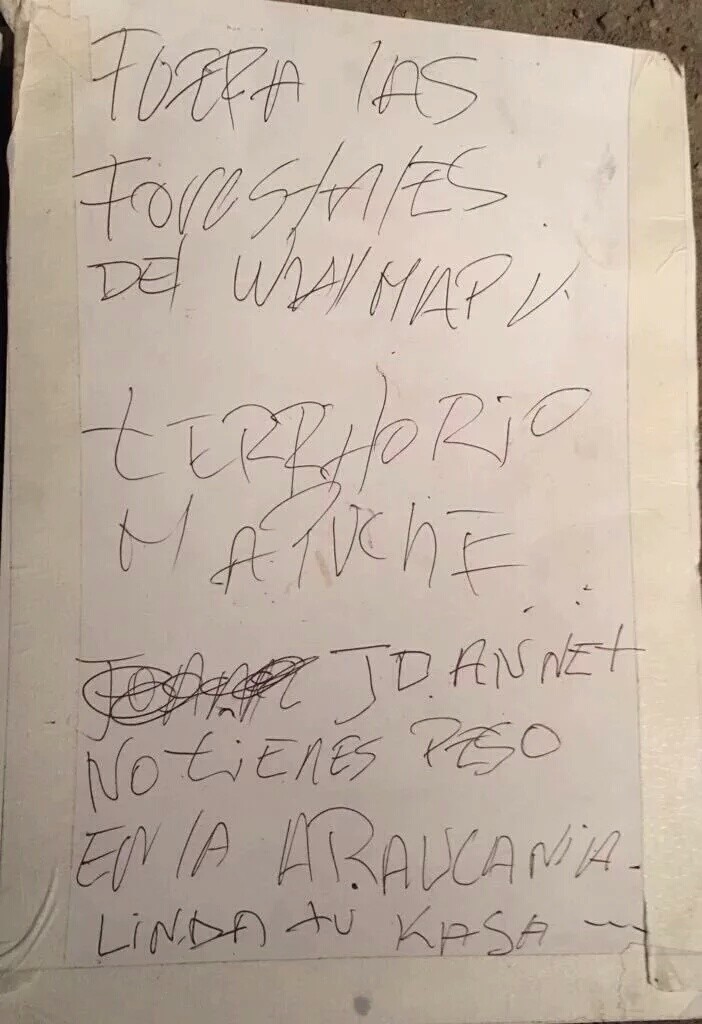 FUERA LAS
FORESTALES
DEL WALLMAPU.
tERRitORiO
MAPUCHE
JOANNEt
NO tiENES PESO
EN LA ARAUCANiA.
LiNDA tU KASA